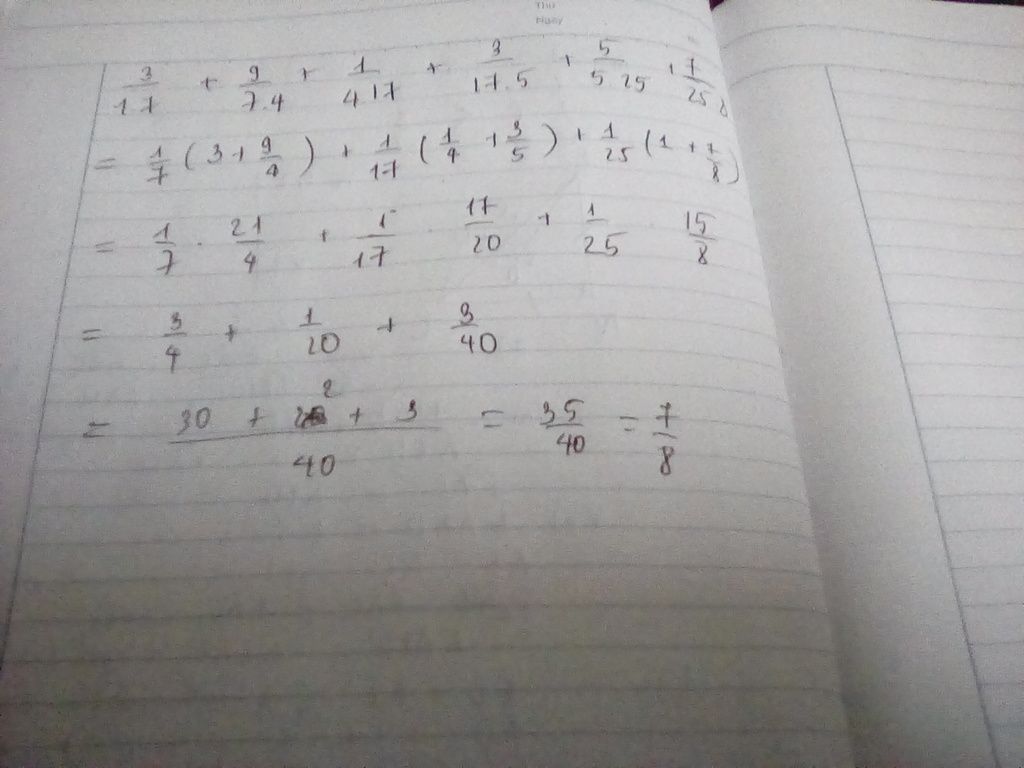 Thứ
Ngày
3/1.7 + 9/7.4 + 1/4.17 + 3/17.5 + 5/5.25 + 7/25.8
= 1/7 (3 + 9/4) + 1/17 (1/4 + 3/5) + 1/25 (1 + 7/8)
= 1/7 . 21/4 + 1/17 . 17/20 + 1/25 15/8
= 3/4 + 1/20 + 3/40
= (30 + 2 + 3)/40 = 35/40 = 7/8